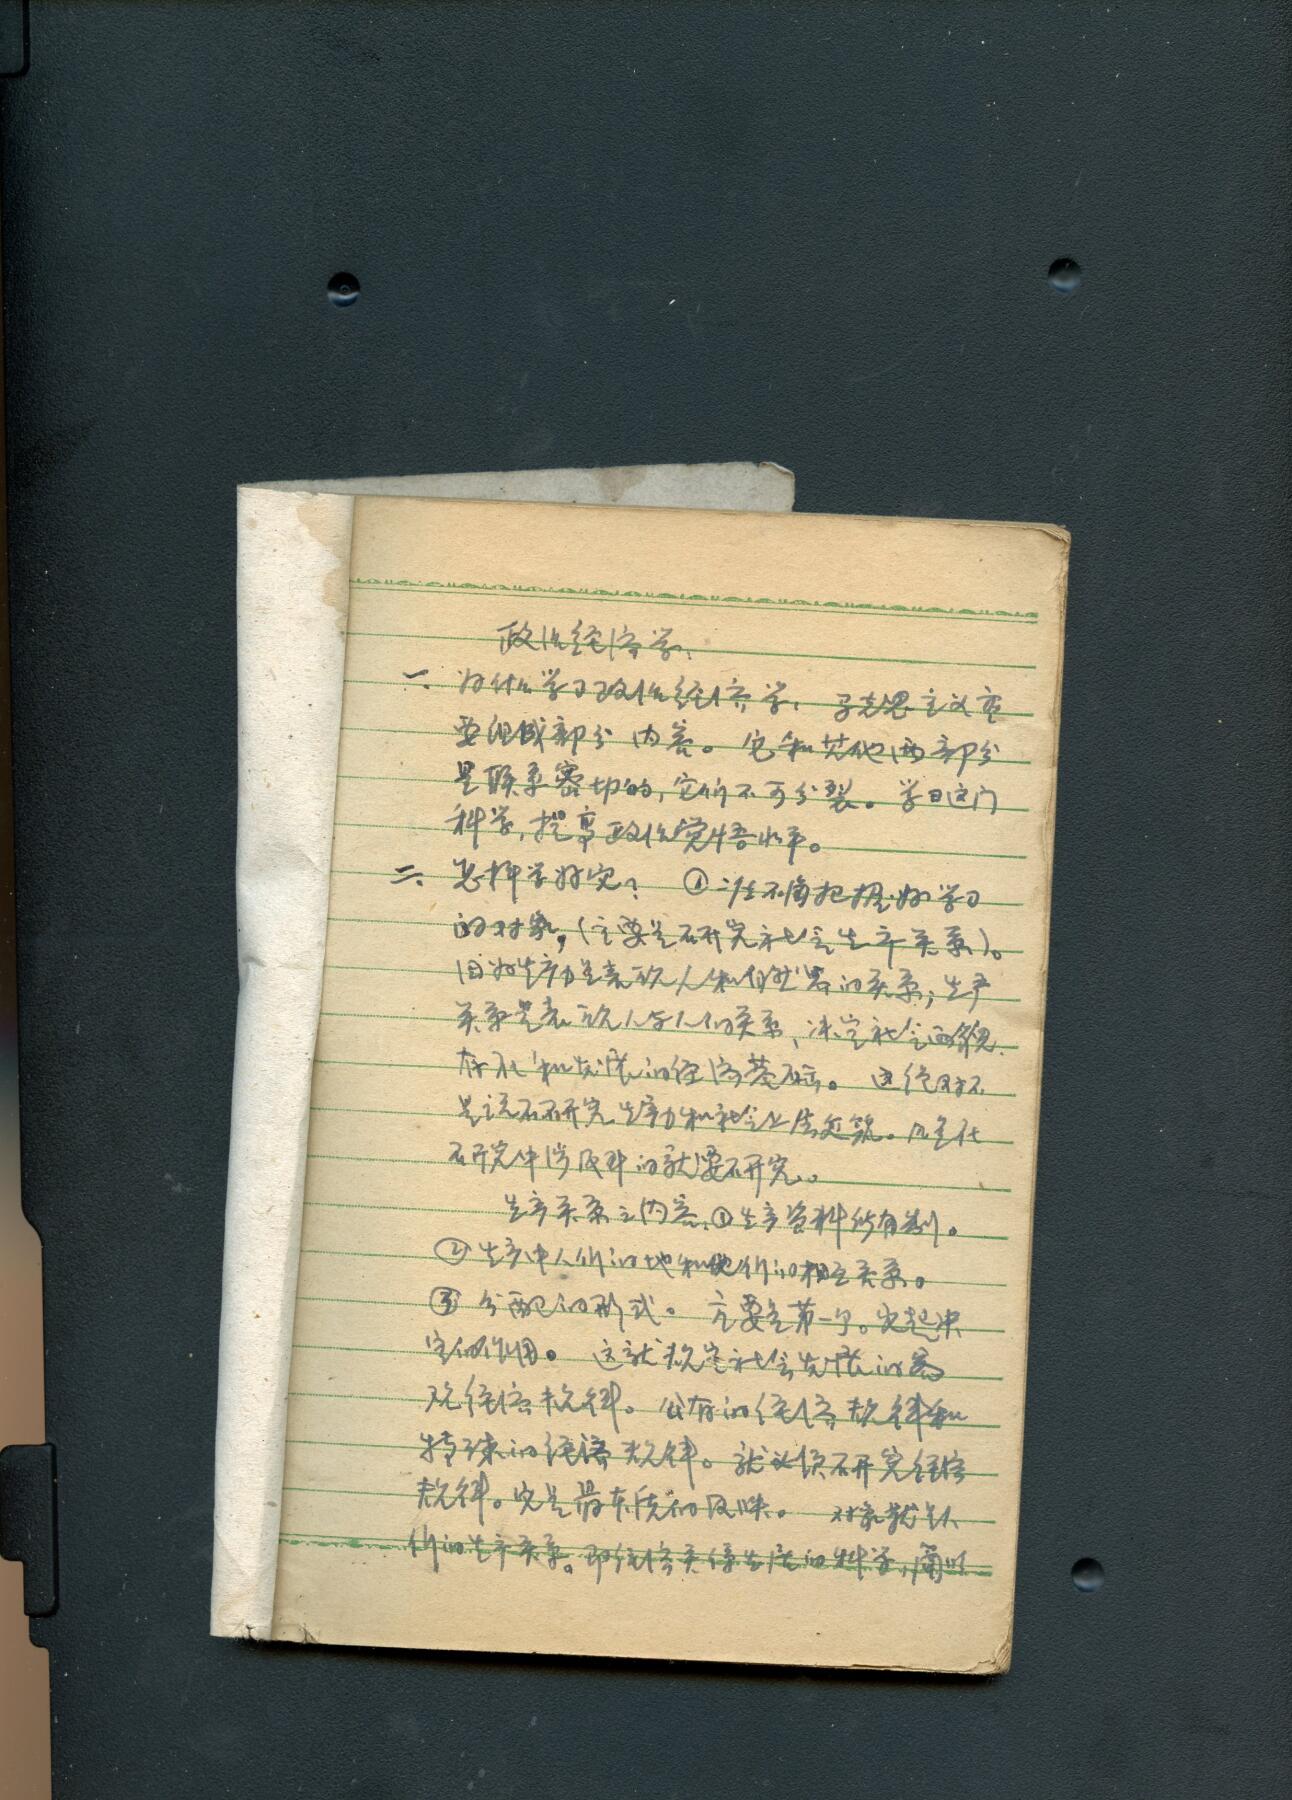 政治经济学:
一、为什么学习政治经济学: 马克思主义重
要组成部分内容。它和其他两部分
是联系密切的,它们不可分裂。学习这门
科学,提高政治觉悟水平。
二、怎样学好它? ①准确把握好学习
的对象,(主要是研究社会生产关系)。
因为生产力是表现人和自然界的关系;生产
关系是表现人与人的关系、决定社会面貌、
存在和发展的经济基础。这绝对不
是说不研究生产力和社会上层建筑。凡是在
研究中涉及到的就要研究。
生产关系之内容、①生产资料所有制。
②生产中人们的地和他们的相互关系。
③分配的形式。主要是第一个。它起决
定的作用。这就规定社会发展的客
观经济规律。公有的经济规律和
特殊的经济规律。就必须研究经济
规律。它是最本质的反映。对象就是人
们的生产关系。即经济关系发展的科学,